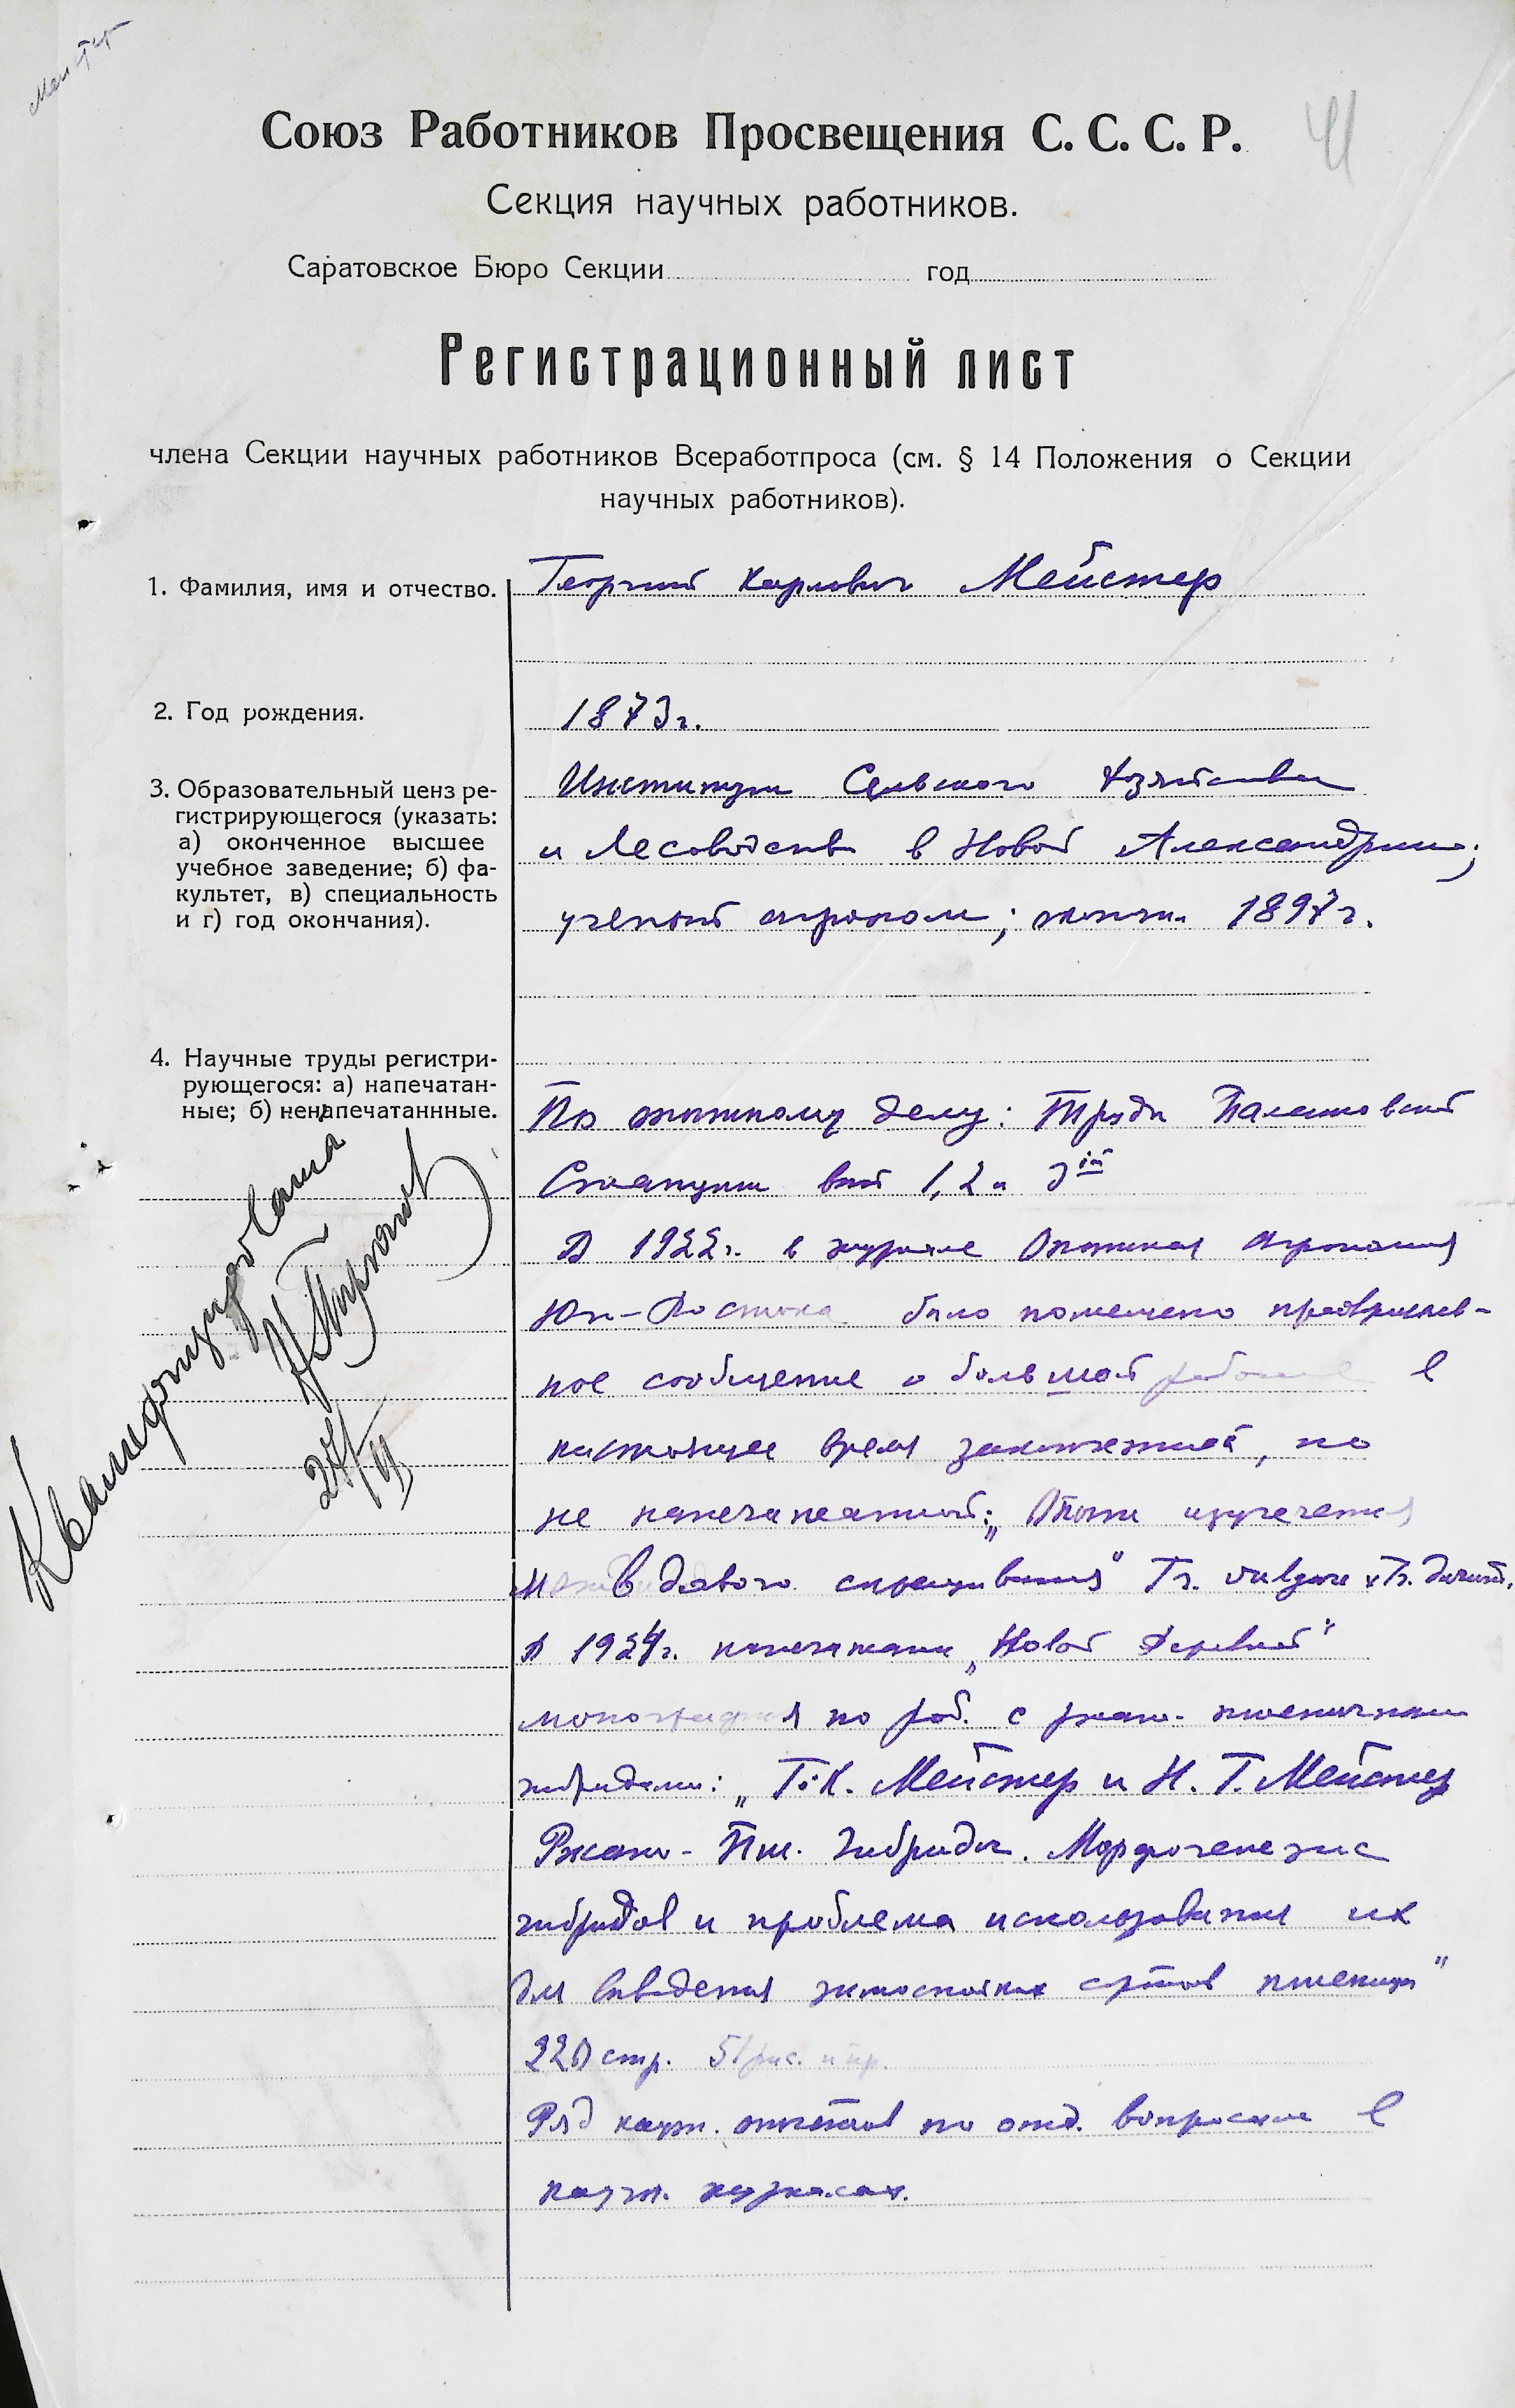 Мейстер
Союз Работников Просвещения С. С. С. Р.
41
Секция научных работников.
Саратовское Бюро Секции год
Регистрационный лист
члена Секции научных работников Всеработпроса (см. § 14 Положения о Секции
научных работников).
1. Фамилия, имя и отчество.
Георгий Карлович Мейстер
2. Год рождения.
1873 г.
3. Образовательный ценз ре-
гистрирующегося (указать:
а) оконченное высшее
учебное заведение; б) фа-
культет, в) специальность
и г) год окончания).
Институт Сельского Хозяйства
и Лесоводства в Новой Александрии;
ученый агроном; окончил 1897 г.
4. Научные труды регистри-
рующегося: а) напечатан-
ные; б) ненапечатаннные.
По опытному делу: Труды Балашовской
Станции вып 1, 2 и 3ій
В 1922 г. в журнале Опытная Агрономия
Юго-Востока было помещено предваритель-
ное сообщение о большой работе в
настоящее время законченной, но
не напечатанной: „Опыты изучения
видового скрещивания" Tr. vulgare x Tr. durum.
В 1924 г. напечатана „Новой Деревней"
монография по раб. с ржано-пшеничными
гибридами: „Г. К. Мейстер и Н. Г. Мейстер
Ржано-Пш. гибриды. Морфогенезис
гибридов и проблема использования их
для выведения зимостойких сортов пшеницы"
220 стр. 51 рис. и пр.
Ряд научн. отчетов по отд. вопросам в
научн. журналах.
Квалифицирована
27/VI